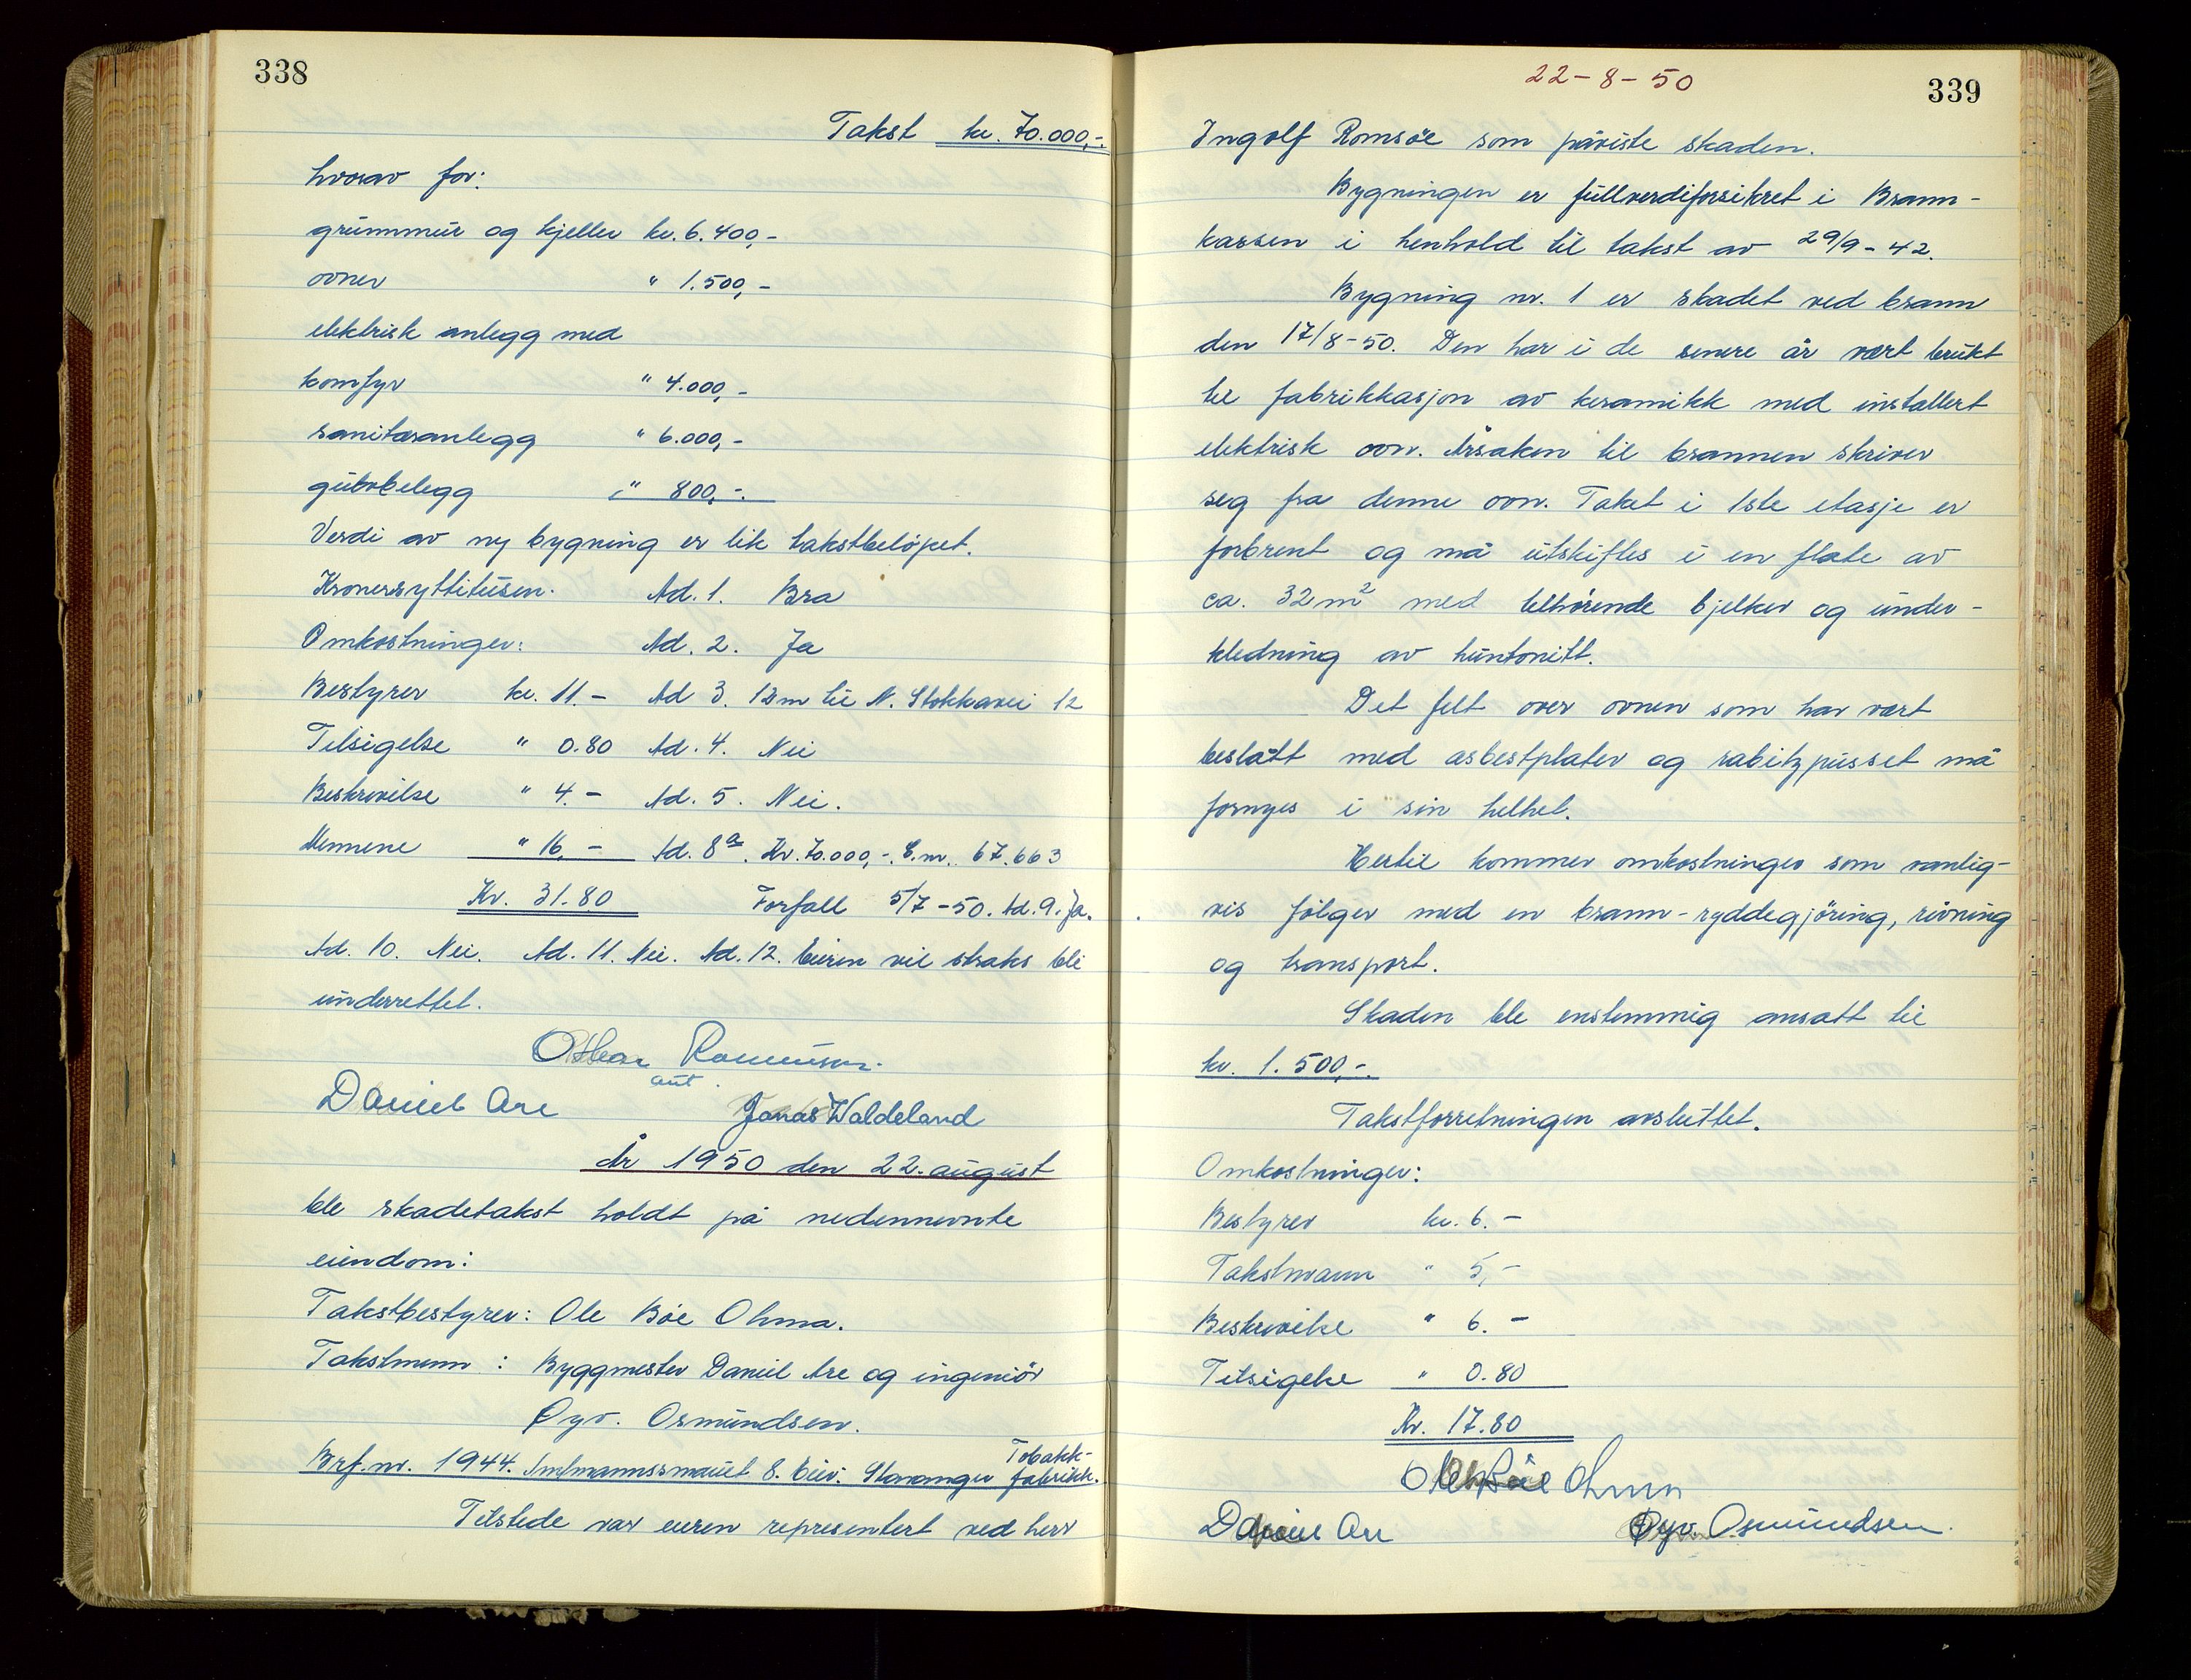 338
Takst kr. 70.000,-.
hvorav for:
grunnmur og kjeller kr. 6.400,-
ovner " 1.500,-
elektrisk anlegg med
komfyr " 4.000,-
sanitæranlegg " 6.000,-
gulvbelegg " 800,-.
Verdi av ny bygning er lik takstbeløpet.
Kronersyttitusen. Ad. 1. Bra
Omkostninger: Ad. 2. Ja
Bestyrer kr. 11.- Ad 3. 13m til N. Stokkavei 12
Tilsigelse " 0.80 Ad. 4. Nei
Beskrivelse " 4.- Ad. 5. Nei.
Mennene " 16,- Ad. 8a. Kr. 70.000,-. E.nr. 67.663
Kr. 31.80 Forfall 5/7-50. Ad. 9. Ja.
Ad. 10. Nei. Ad. 11. Nei. Ad. 12. Eieren vil straks bli
underrettet.
Othar Rasmussen.
aut.
Daniel Are Jonas Waldeland
År 1950 den 22. august
ble skadetakst holdt på nedennevnte
eiendom:
Takstbestyrer: Ole Bøe Ohma.
Takstmenn: Byggmester Daniel Are og ingeniør
Øyv. Osmundsen.
Brf.nr. 1944. Amtmannssmauet 8. Eier: Stavanger Tobakk-
fabrikk.
Tilstede var eieren representert ved herr
22-8-50
339
Ingolf Romsøe som påviste skaden.
Bygningen er fullverdiforsikret i Brann-
kassen i henhold til takst av 29/9-42.
Bygning nr. 1 er skadet ved brann
den 17/8-50. Den har i de senere år vært brukt
til fabrikkasjon av keramikk med installert
elektrisk ovn. Årsaken til brannen skriver
seg fra denne ovn. Taket i 1ste etasje er
forbrent og må utskiftes i en flate av
ca. 32 m² med tilhørende bjelker og under-
kledning av huntonitt.
Det felt over ovnen som har vært
beslått med asbestplater og rabitzpusset må
fornyes i sin helhet.
Hertil kommer omkostninger som vanlig-
vis følger med en brann-ryddegjøring, rivning
og transport.
Skaden ble enstemmig ansatt til
kr. 1.500,-.
Takstforretningen avsluttet.
Omkostninger:
Bestyrer kr. 6.-
Takstmann " 5,-
Beskrivelse " 6.-
Tilsigelse " 0.80
Kr. 17.80
Ole Bøe Ohma
Daniel Are Øyv. Osmundsen.